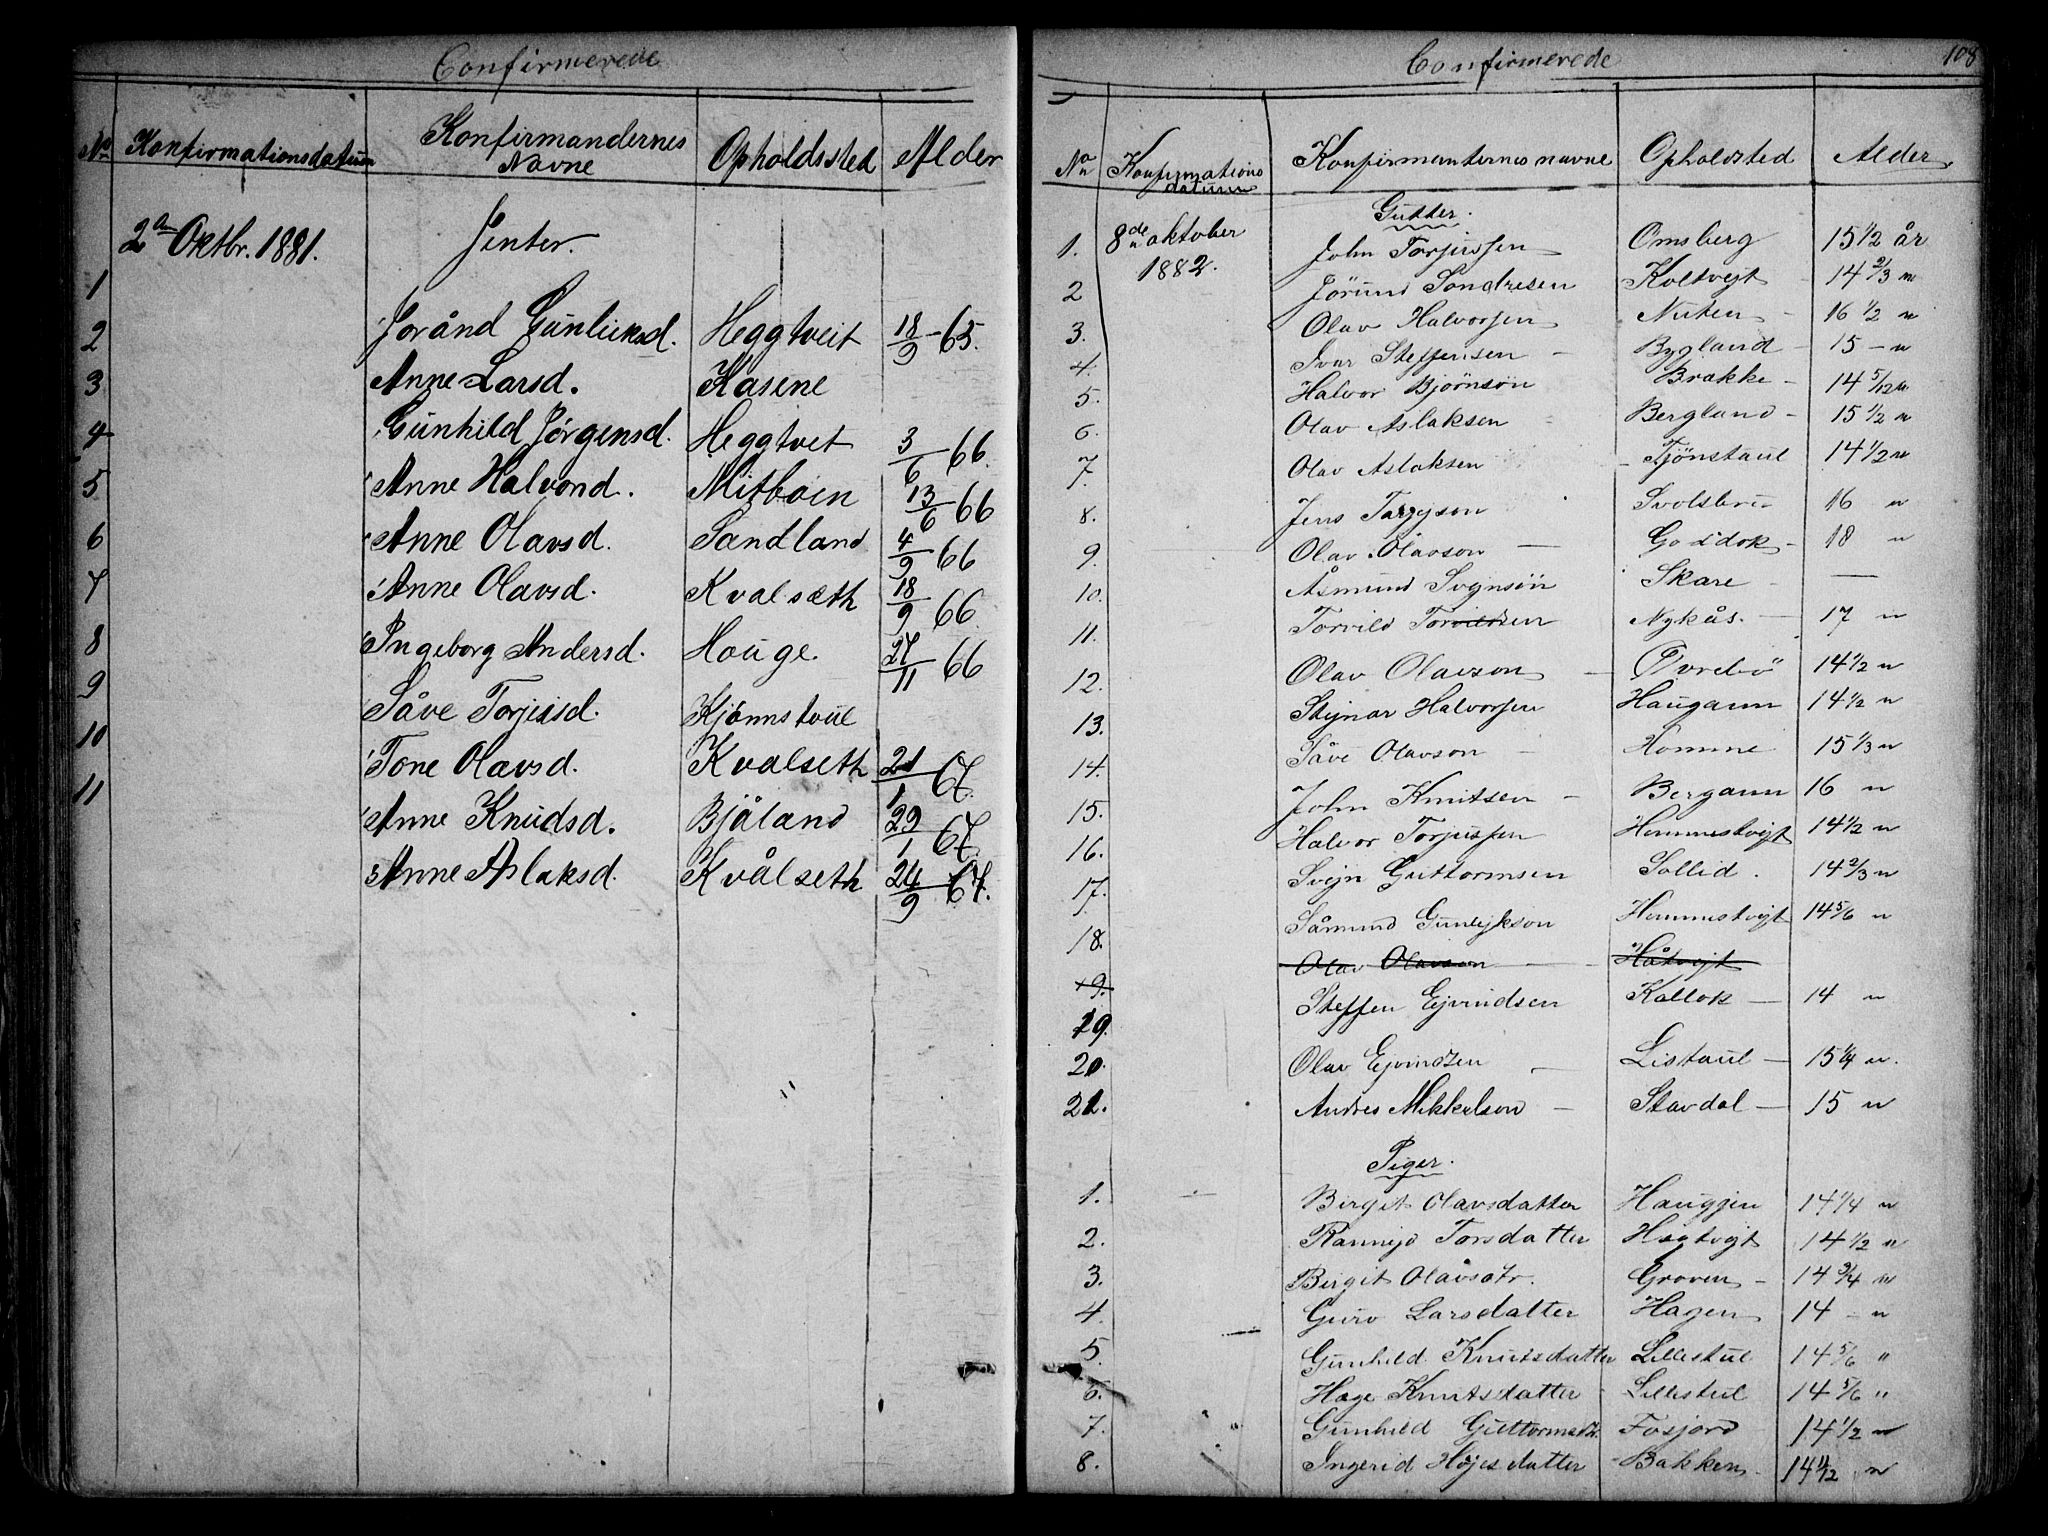 Confirmerede
No Konfirmationsdatum Konfirmandernes Navne Opholdssted Alder
2den Oktbr. 1881. Jenter.
1 Joránd Gunleiksd. Heggtveit 18/9 - 65.
2 Anne Larsd. Kasene
3 Gunhild Jørgensd. Heggtvet 3/6 66.
4 Anne Halvorsd. Mitboen 13/6 66
5 Anne Olavsd. Sandland 4/9 66
6 Anne Olavsd. Kvalsæth 18/9 66.
7 Ingeborg Andersd. Houge. 27/11 66
8 Såve Torjusd. Kjønnstuul
9 Tone Olavsd. Kvalseth 21/1 67.
10 Anne Knudsd. Bjåland 29/1 67.
11 Anne Aslaksd. Kvålseth 24/9 67.
Confirmerede 108
No Konfirmations datum Konfirmanternes navne Opholdsted Alder
Gutter.
1. 8de oktober 1882. John Torjussen Omsberg 15 1/2 år
2 Jörund Sondresen Koltvejt - 14 2/3 "
3. Olav Halvorsen Nuten - 16 1/2 "
4. Ivar Steffensen - Bygland - 15 - "
5. Halvor Bjørnsön Brakke - 14 5/12 "
6. Olav Aslaksen Bergland - 15 1/2 "
7. Olav Aslaksen Tjönstaul 14 1/2 "
8. Jens Targyson 16 "
9. Olav Olavson - 18 "
10. Åsmund Svejnsön Skare - -
11. Torvild Torvildsen Nykås. - 17 "
12. Olav Olavson - Övrebö 14 1/2 "
13. Stejnar Halvorsen Haugann 14 1/2 "
14. Såve Olavson - Homme 15 1/3 "
15. John Knutsen - Bergann 16 "
16. Halvor Torjussen Hommestvejt 14 1/2 "
17. Svejn Guttormsen Sollid. 14 2/3 "
18. Såmund Gunlejkson Hommestvejt 14 5/6 "
19. Olav Olavson - Håtvejt
19. Steffen Ejvindsen Kallok - 14 "
20. Olav Ejvindsen - Listaul - 15 1/4 ".
21. Andres Mikkelson - Stavdal - 15 "
Piger.
1. Birgit Olavsdatter Haugjen 14 1/4 "
2. Rannejd Torsdatter Hægtvejt 14 1/2 "
3. Birgit Olavsdtr. Groven - 14 3/4 "
4. Guro Larsdatter Hagen 14 - "
5. Gunhild Knutsdatter Lillestul 14 5/6 "
6. Hæge Knutsdatter Lillestul 14 5/6 "
7. Gunhild Guttormsdtr. Fosjord 14 1/2 "
8. Ingerid Højesdatter - Bakken 14 1/2 "